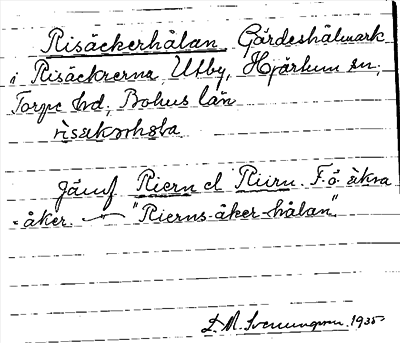 Risäckerhålan Gärdeshålmark
i Risäckrerna, Utby, Hjärtum sn,
Torpe hd, Bohus län
Jämf Riern el Riirn. F.ö. åkra
-åker. "Rierns-åker-hålan"
D. M. Svenungsson. 1935